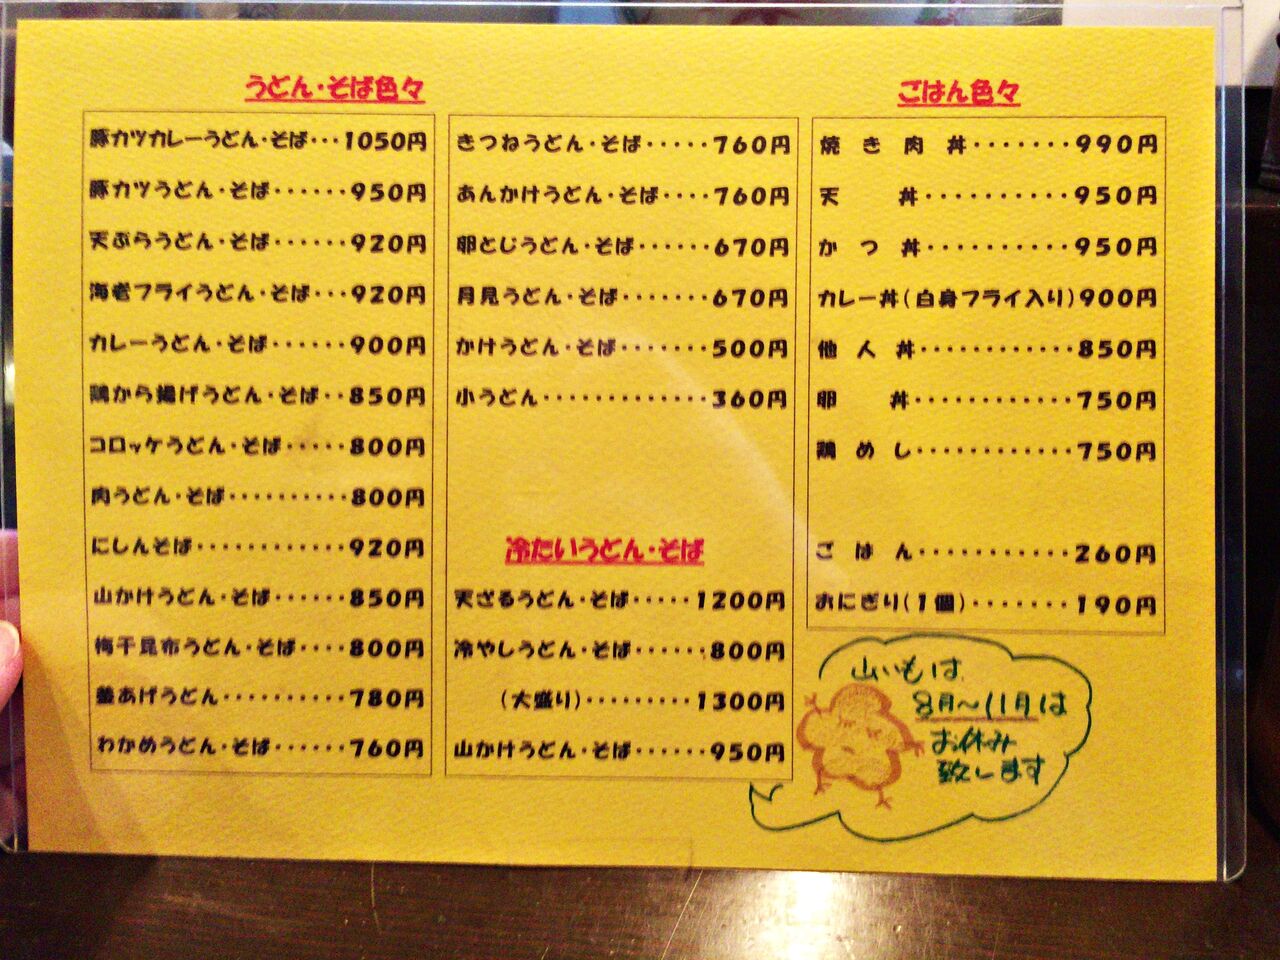 うどん・そば色々
豚カツカレーうどん・そば・・・1050円
豚カツうどん・そば・・・・・・950円
天ぷらうどん・そば・・・・・・920円
海老フライうどん・そば・・・920円
カレーうどん・そば・・・・・・900円
鶏から揚げうどん・そば・・850円
コロッケうどん・そば・・・・・800円
肉うどん・そば・・・・・・・・・・800円
にしんそば・・・・・・・・・・・・920円
山かけうどん・そば・・・・・・850円
梅干昆布うどん・そば・・・・800円
釜あげうどん・・・・・・・・・・780円
わかめうどん・そば・・・・・・760円
きつねうどん・そば・・・・・760円
あんかけうどん・そば・・・・760円
卵とじうどん・そば・・・・・670円
月見うどん・そば・・・・・・・670円
かけうどん・そば・・・・・・・500円
小うどん・・・・・・・・・・・・・360円
冷たいうどん・そば
天ざるうどん・そば・・・・・1200円
冷やしうどん・そば・・・・・・800円
(大盛り)・・・・・・・・・1300円
山かけうどん・そば・・・・・・950円
ごはん色々
焼き肉丼・・・・・・・990円
天丼・・・・・・・・・・950円
かつ丼・・・・・・・・・・950円
カレー丼(白身フライ入り)900円
他人丼・・・・・・・・・・・・850円
卵丼・・・・・・・・・・・・750円
鶏めし・・・・・・・・・・・・750円
ごはん・・・・・・・・・・・・260円
おにぎり(1個)・・・・・・・190円
山いもは
8月〜11月は
お休み
致します